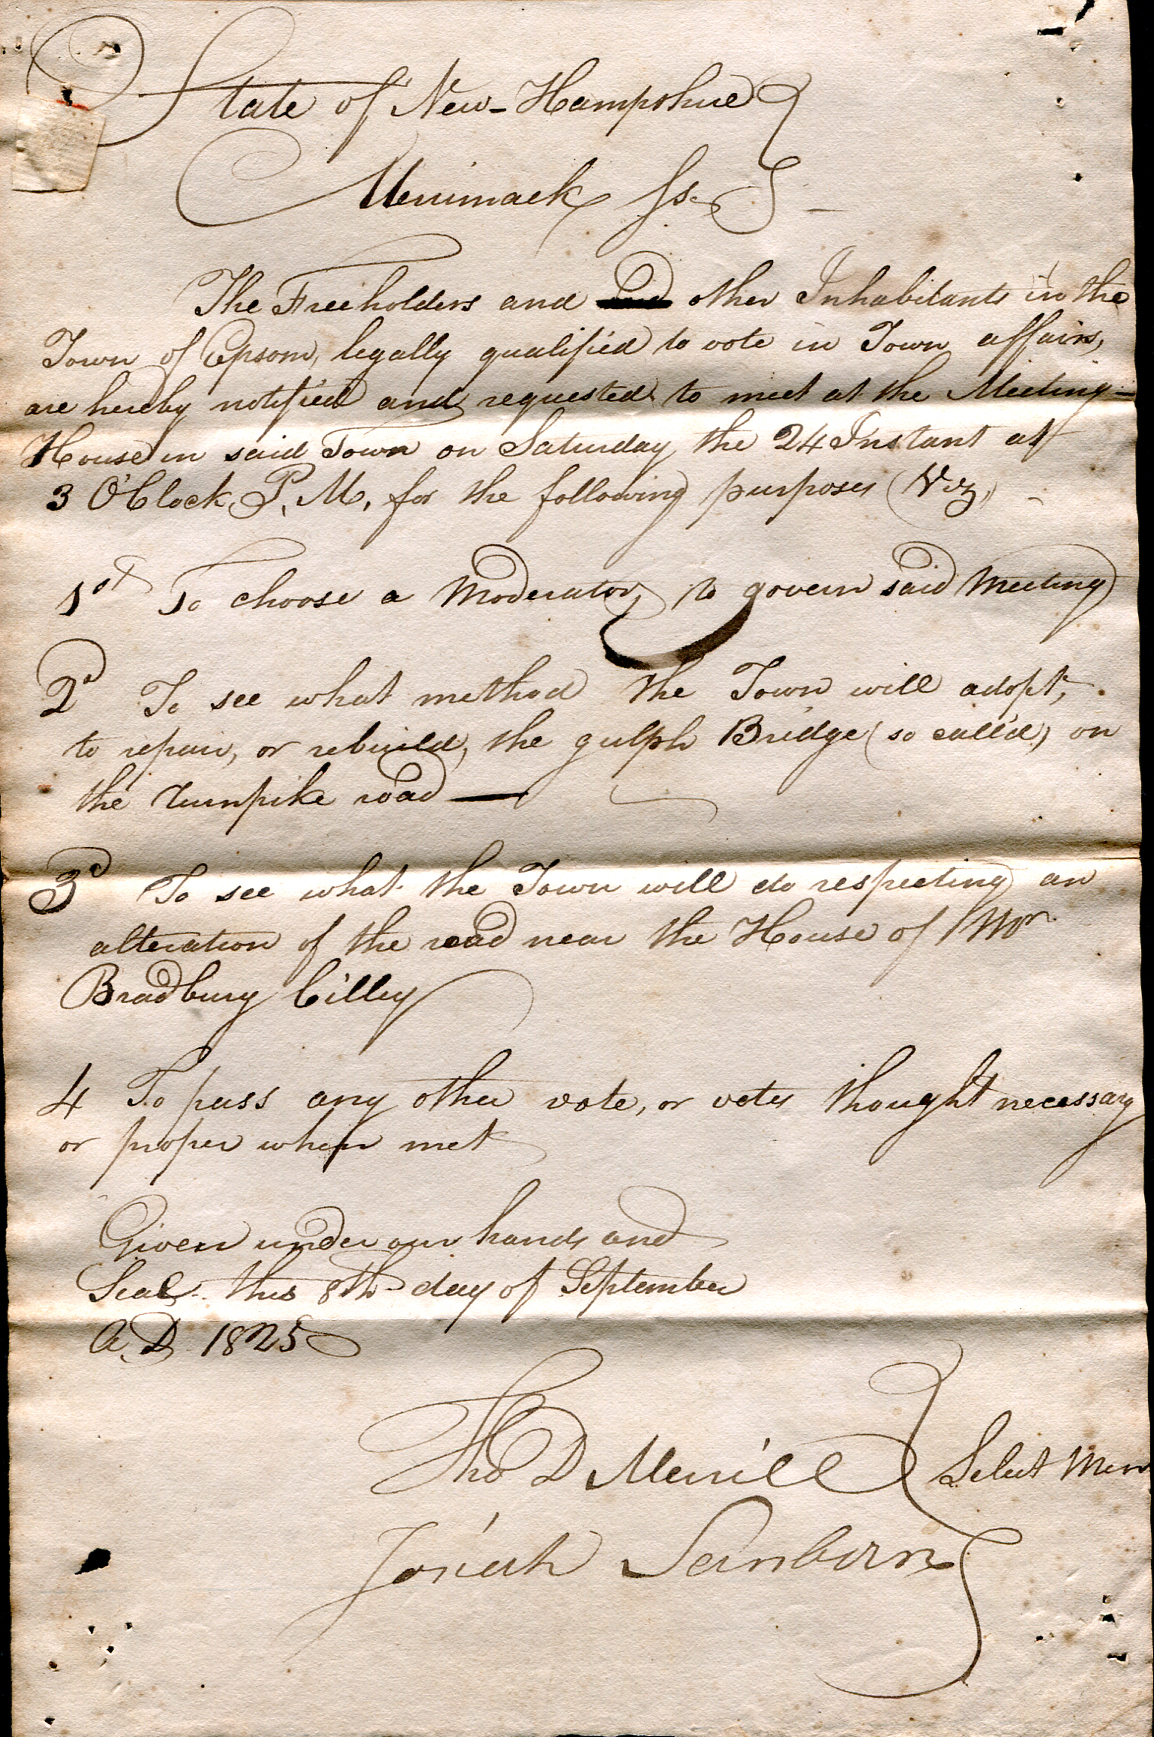 State of New-Hampshire
Merrimack Ss.
The Freeholders and other Inhabitants in the
Town of Epsom, legally qualified to vote in Town affairs,
are hereby notified and requested to meet at the Meeting-
House in said Town on Saturday the 24 Instant at
3 O'Clock, P.M. for the following purposes (Viz,)
1st To choose a Moderator, to govern said Meeting
2d To see what method the Town will adopt,
to repair, or rebuild, the gulph Bridge (so calle'd) on
the Turnpike road —
3d To see what the Town will do respecting an
alteration of the road near the House of Mr.
Bradbury Cilley
4 To pass any other vote, or votes thought necessary
or proper when met
Given under our hands and
Seal this 8th day of September
A.D. 1825
Tho D Merrill Select Men
Josiah Sanborn